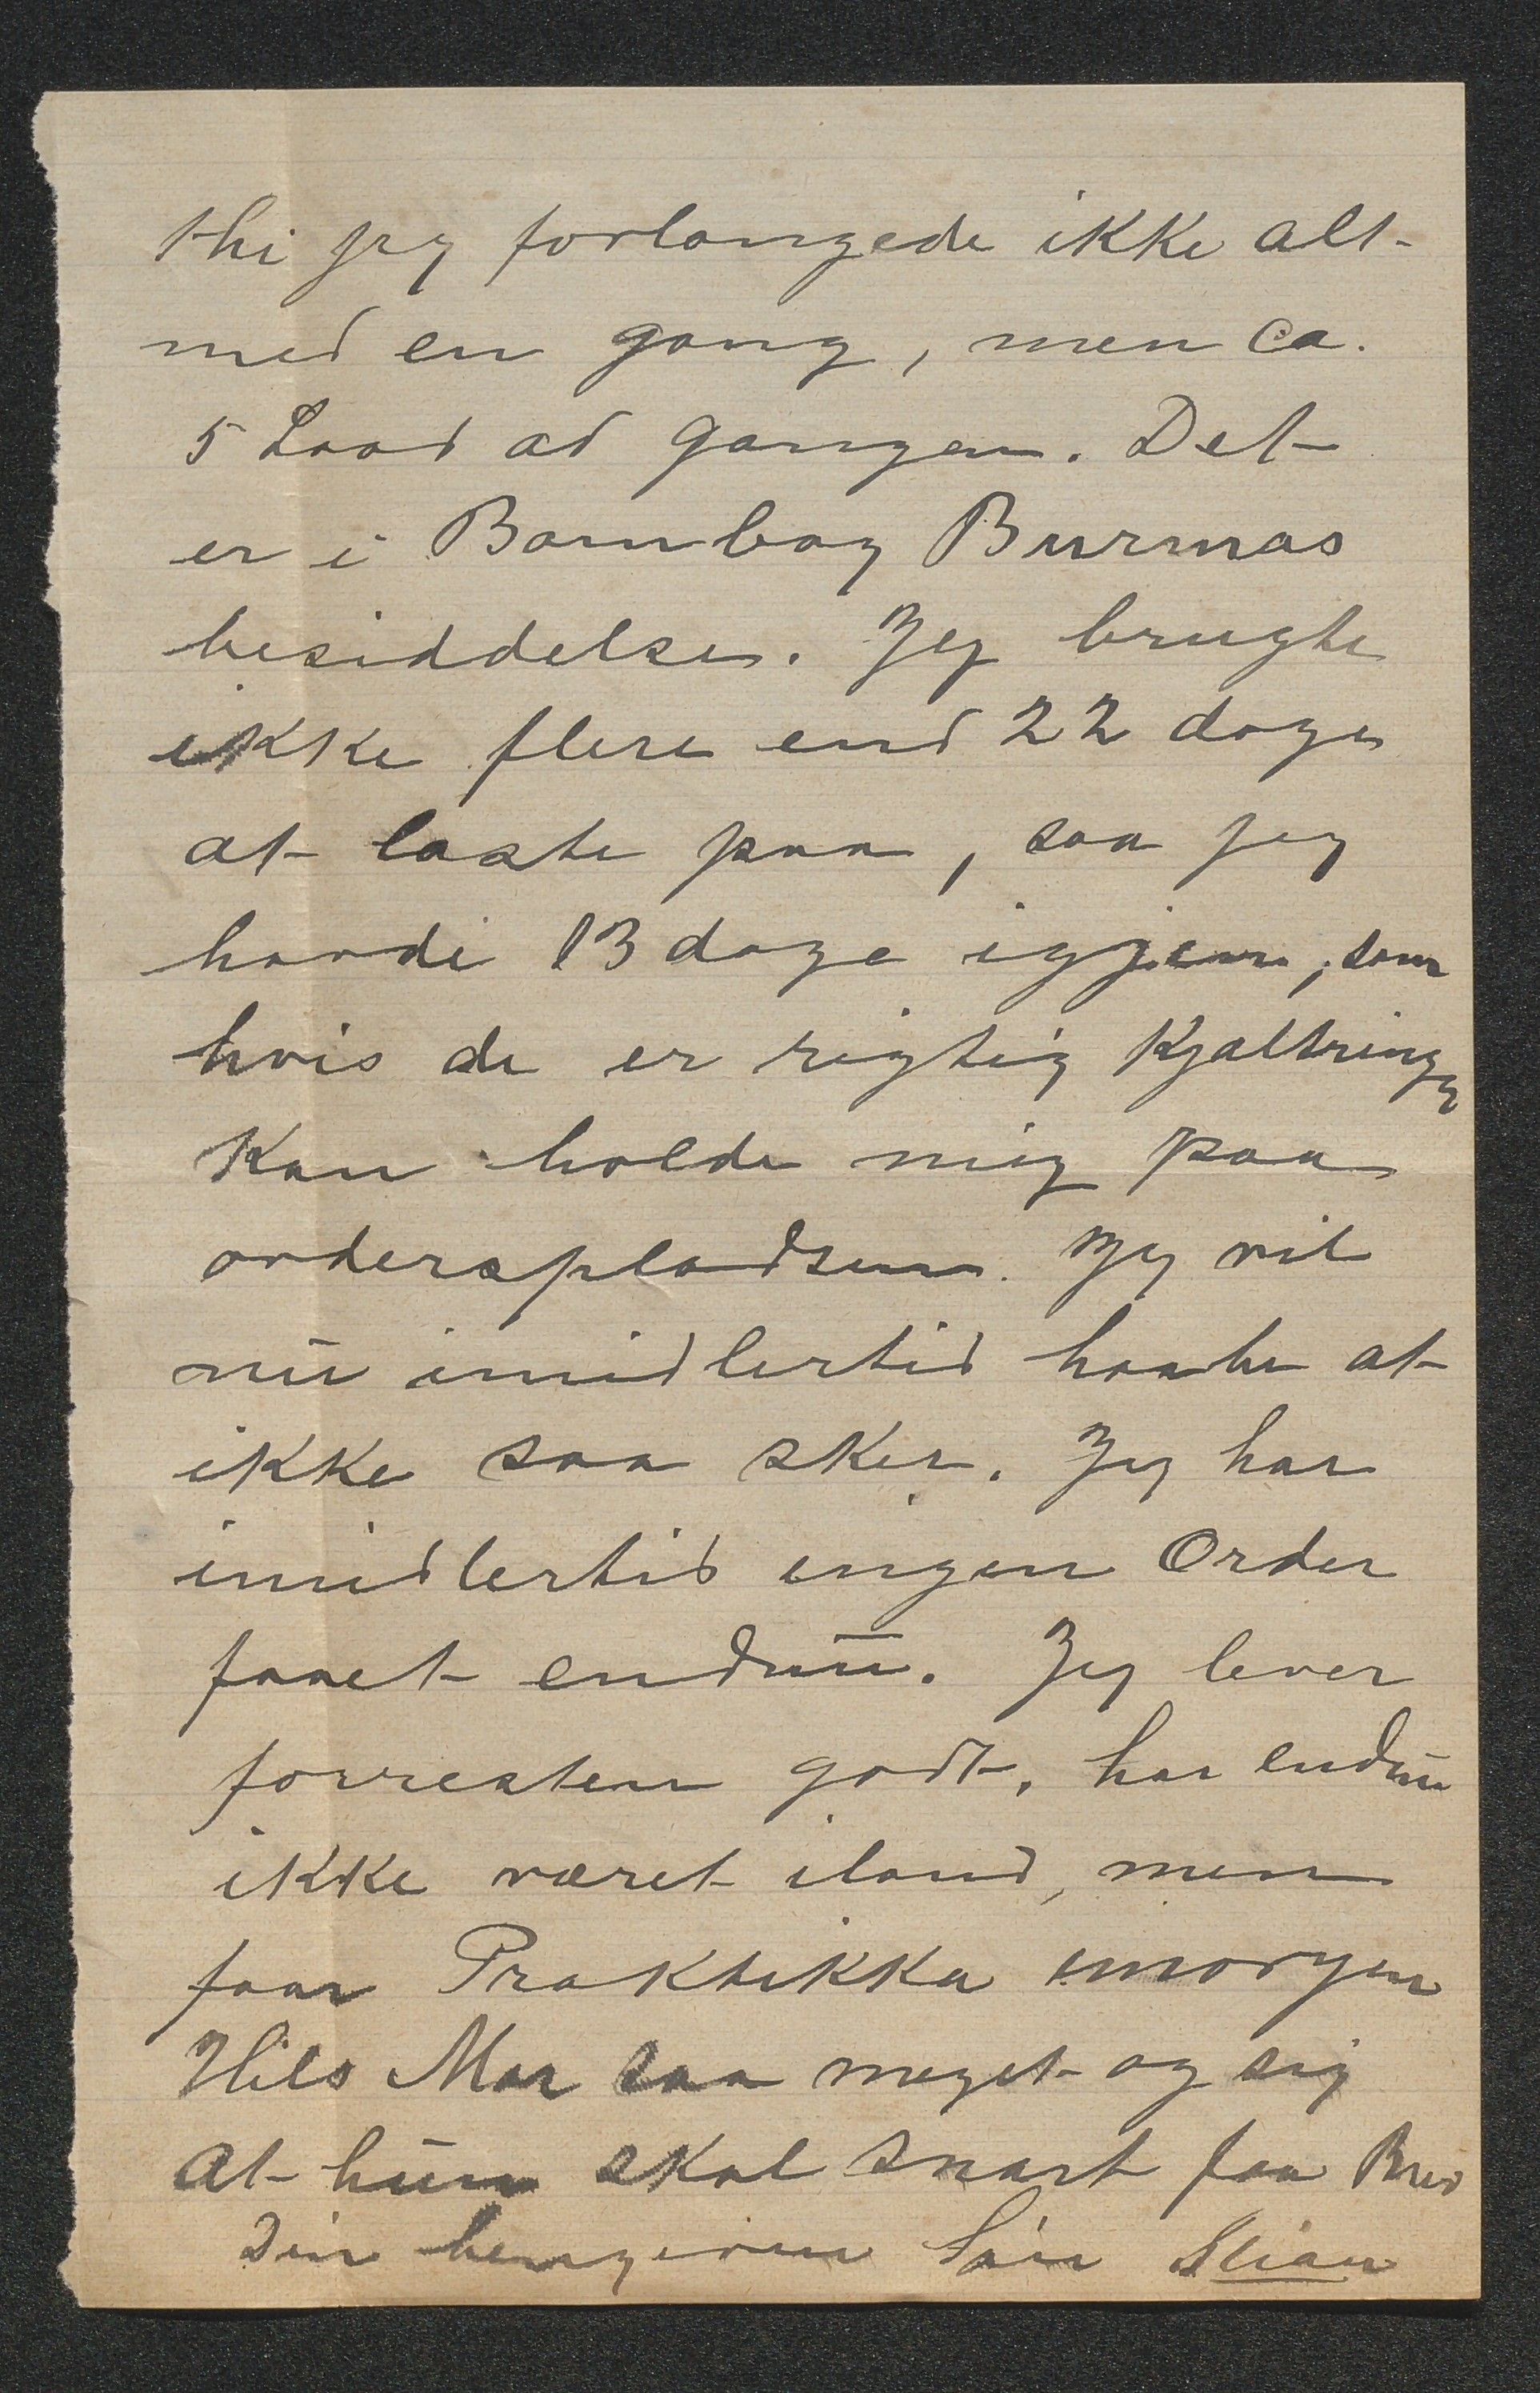 thi jeg forlangede ikke alt
med en gang, men ca.
5 Laad ad gangen. Det
er i Bombay Burmas
besiddelse. Jeg brugte
ikke flere end 22 dage
at laste paa, saa jeg
havde 13 dage igjen, som
hvis de er rigtig Kjæltringer
Kan holde mig paa
orderspladsen. Jeg vil
nu imidlertid haabe at
ikke saa sker. Jeg har
imidlertid ingen Order
faaet endnu. Jeg lever
forresten godt, har endnu
ikke været iland, men
faar Praktikka imorgen
Hils Mor saa meget og sig
at hun skal snart faa Brev
Din hengivne Søn